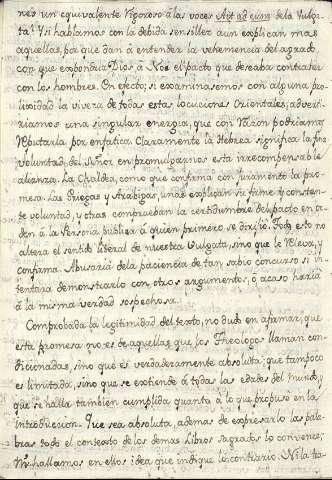 nes un equivalente vigoroso á las voces Ait ad eum de la Vulga-
ta? Y si hablamos con la debida sensillez aun explican mas
aquellas, por que dan á entender la vehemencia del agrado
con que exponia Dios á Noé el pacto que deseaba contraher
con los hombres. En efecto; si examinasemos con alguna pro-
lixidad la viveza de todas estas locuciones Orientales; adverti-
riamos una singular energia, que con razon podriamos
reputarla por enfatica. Claramente la Hebrea significa la fixa
voluntad del Señor en promulgarnos esta irrecompensable
alianza. La Chaldea, como que confirma con juramento la pro-
mesa: Las Griegas y Arabigas, unas explican su firme y consten-
te voluntad, y otras comprueban la certidumbre del pacto en or-
den á la Persona publica á quien primero se dixo. Todo esto no
altera el sentido literal de nuestra Vulgata, sino que le releva, y
confirma. Abusaria de la paciencia de tan sabio concurso si in-
tentara demonstrarlo con otros argumentos, ó acaso haria
á la misma verdad sospechosa.
Comprobada la legitimidad del texto, no dudo en afirmar; que
esta promesa no es de aquellas que los Theologos llaman con-
dicionadas, sino que es verdaderamente absoluta; que tampoco
es limitada, sino que se extiende á todas las edades del mundo, y
que se halla tambien cumplida quanto á lo que propuse en la
Introduccion. Que sea absoluta, ademas de expresarlo las pala-
bras todo el contexto de los demas Libros sagrados lo convence;
no hallamos en ellos idea que indique lo contrario. Ni la tra-